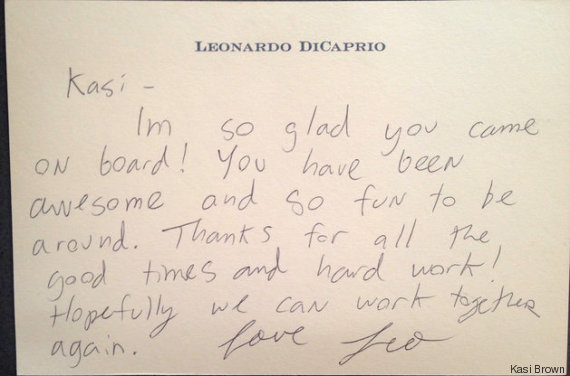 LEONARDO DICAPRIO
Kasi -
Im so glad you came
on board! You have been
awesome and so fun to be
around. Thanks for all the
good times and hard work!
Hopefully we can work together
again. Love Leo
Kasi Brown